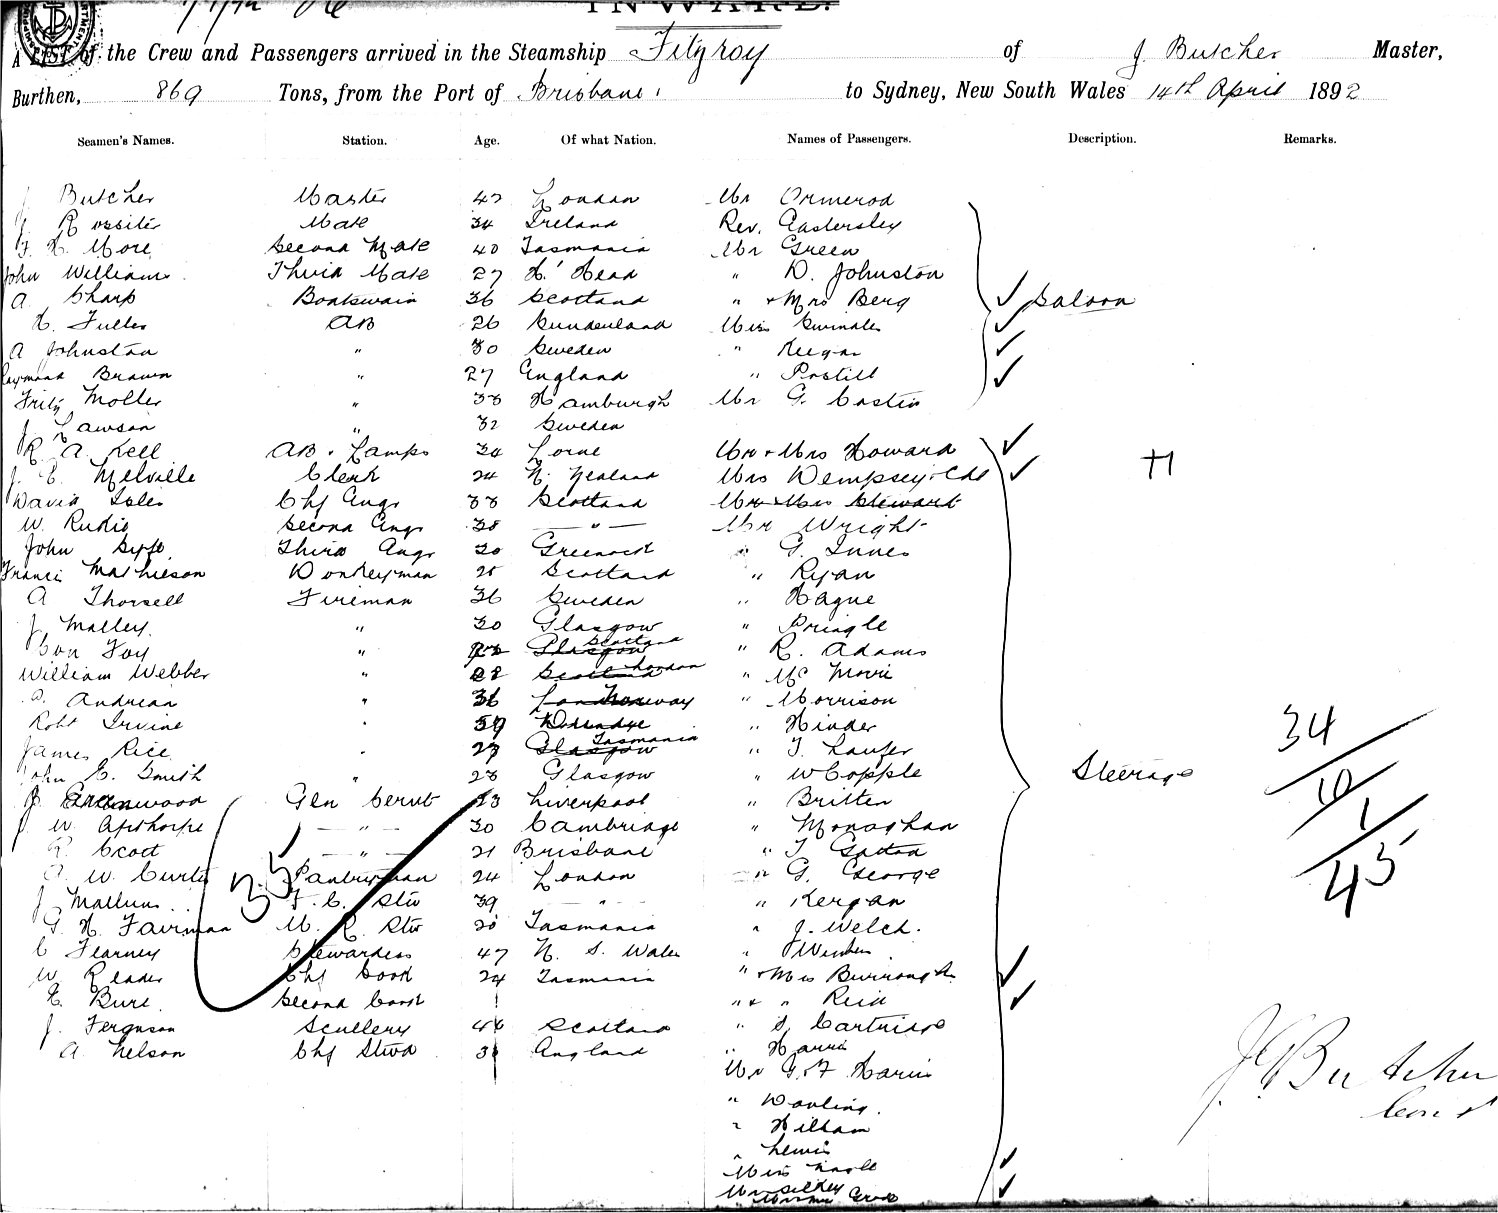 INWARD.
A LIST of the Crew and Passengers arrived in the Steamship Fitzroy of J Butcher Master,
Burthen, 869 Tons, from the Port of Brisbane to Sydney, New South Wales 14th April 1892
Seamen's Names. Station. Age. Of what Nation. Names of Passengers. Description. Remarks.
J Butcher Master 42 London Mr Ormerod
J Rossiter Mate 34 Ireland Rev. Eastersley
F. H. More Second Mate 40 Tasmania Mr Green
John Williams Third Mate 27 H' Head " D. Johnston
A Sharp Boatswain 36 Scotland " & Mrs Berg Saloon
H. Fuller AB 26 Sunderland Miss
A Johnston " 30 Sweden " Keegan
Raymond Brown " 27 England " Postill
Fritz Moller " 33 Hamburgh Mr G. Costin
J Lawson " 32 Sweden
R. A. Kell AB & Lamps 34 Lorne Mr & Mrs Howard
J. E. Melville Clerk 24 N. Zealand Mrs Dempsey & Chd H
David Isles Chf Engr 38 Scotland Mr & Mrs Stewart
W. Rudio Second Engr 38 " Mr Wright
John Third Engr 30 Greenock " G. Innes
Francis Mathieson Donkeyman Scotland " Ryan
A Thorsell Fireman 36 Sweden " Hague
J Malley " 30 Glasgow " Pringle
Con Foy " 22 Glasgow Scotland " R. Adams
William Webber " 22 Scotland London " Mc
A. Andrean " 36 London Norway " Morrison
Robt Irvine " " Hinder 34
James Rice " 27 Glasgow Tasmania " T. Laufer
John E. Smith " 28 Glasgow " W Copple Steerage
J. Greenwood Gen Servt 23 Liverpool " Britten 10
J. W. Apthorpe " 30 Cambridge " Monaghan 1
R. Scott " 21 Brisbane " T Gatton
A. W. Curtis Pantryman 24 London " G. George 45
35
J Mallum F. C. Stw 39 " " Kergan
G. H. Fairman M. R. Stw 20 Tasmania " J. Welch.
C Fearney Stewardess 47 N. S. Wales "
W Reader Chf Cook 24 Tasmania " & Mrs Burroughs
E Burl Second Cook " & " Reid
J. Ferguson Scullery 44 Scotland " S. Cartridge
A. Nelson Chf Stwd 38 England " Harris
Mr G. F. Harris
" Dowling.
J. Butcher
" Hillam
" Lewis
Miss
Mr